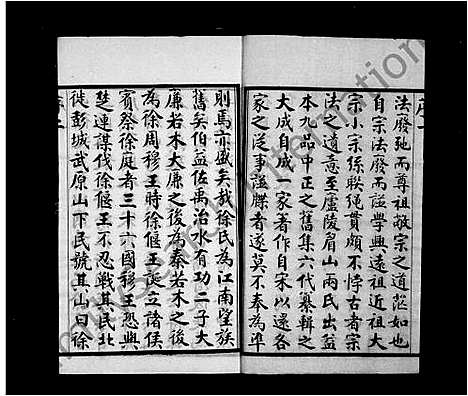 法廢弛而尊祖敬宗之道茫如也
自宗法廢而譜學興遠祖近祖大
宗小宗絲聯繩貫頗不悖古者宗
法之遺意至廬陵眉山兩氏出益
本九品中正之舊集六代纂輯之
大成自成一家著作自宋以還各
家之從事譜牒者遂莫不奉為準
則焉亦盛矣哉徐氏為江南望族
舊矣伯益佐禹治水有功二子大
廉若木大廉之後為秦若木之後
為徐周穆王時徐偃王誕立諸侯
賓祭徐庭者三十六國穆王恐與
楚連謀伐徐偃王不忍戰其民北
徙彭城武原山下民號其山曰徐
序二